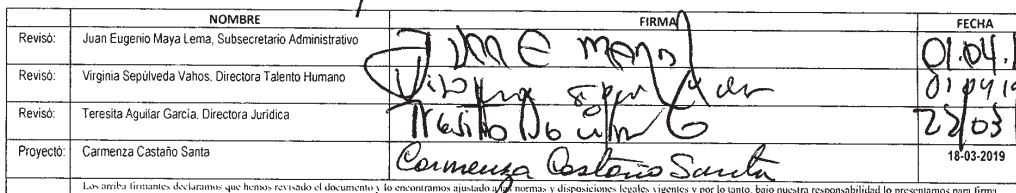 NOMBRE FIRMA FECHA
Revisó: Juan Eugenio Maya Lema, Subsecretario Administrativo 01.04.
Revisó: Virginia Sepúlveda Vahos, Directora Talento Humano 01 04 19
Revisó: Teresita Aguilar García. Directora Jurídica 22/03
Proyectó: Carmenza Castaño Santa Carmenza Castaño Santa 18-03-2019
Los arriba firmantes declaramos que hemos revisado el documento y lo encontramos ajustado a las normas y disposiciones legales vigentes y por lo tanto, bajo nuestra responsabilidad lo presentamos para firma